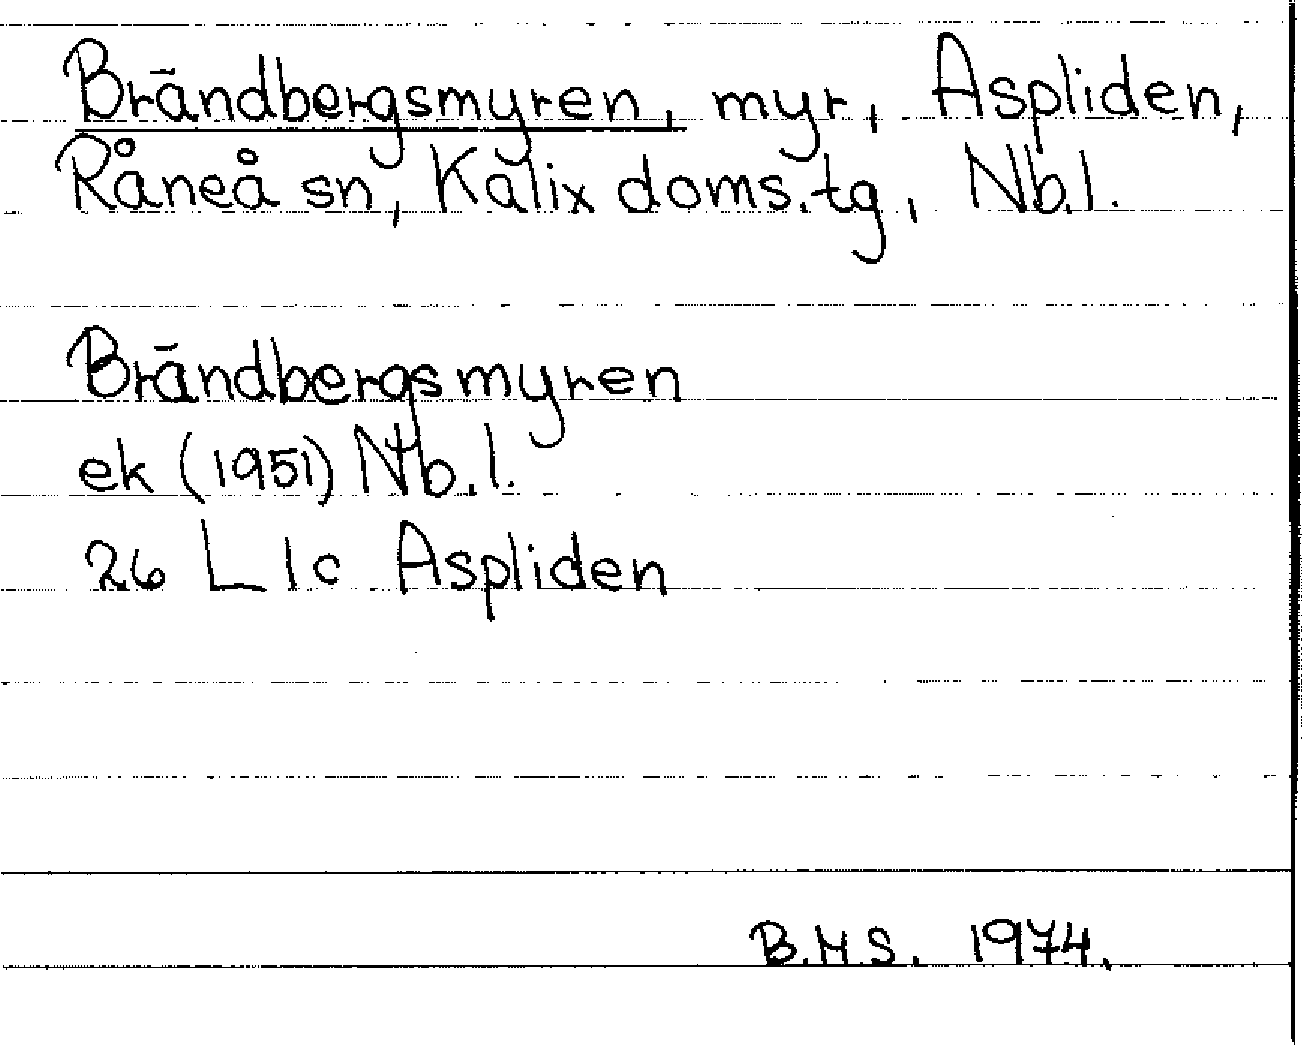 Brändbergsmyren, myr, Aspliden,
Råneå sn, Kalix doms.tg, Nb.l.
Brändbergsmyren
ek (1951) Nb.l.
26 L 1c Aspliden
B.M.S. 1974.